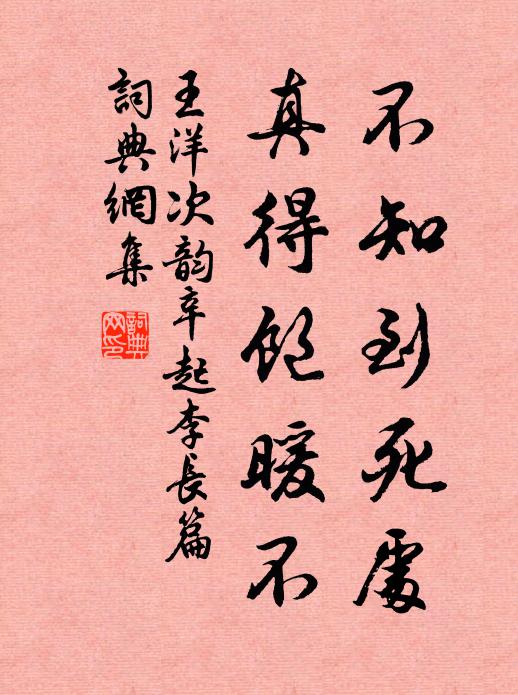 不知到死處
真得飽暖不
王洋次韵辛起李長篇
詞典網集
詞典
網印